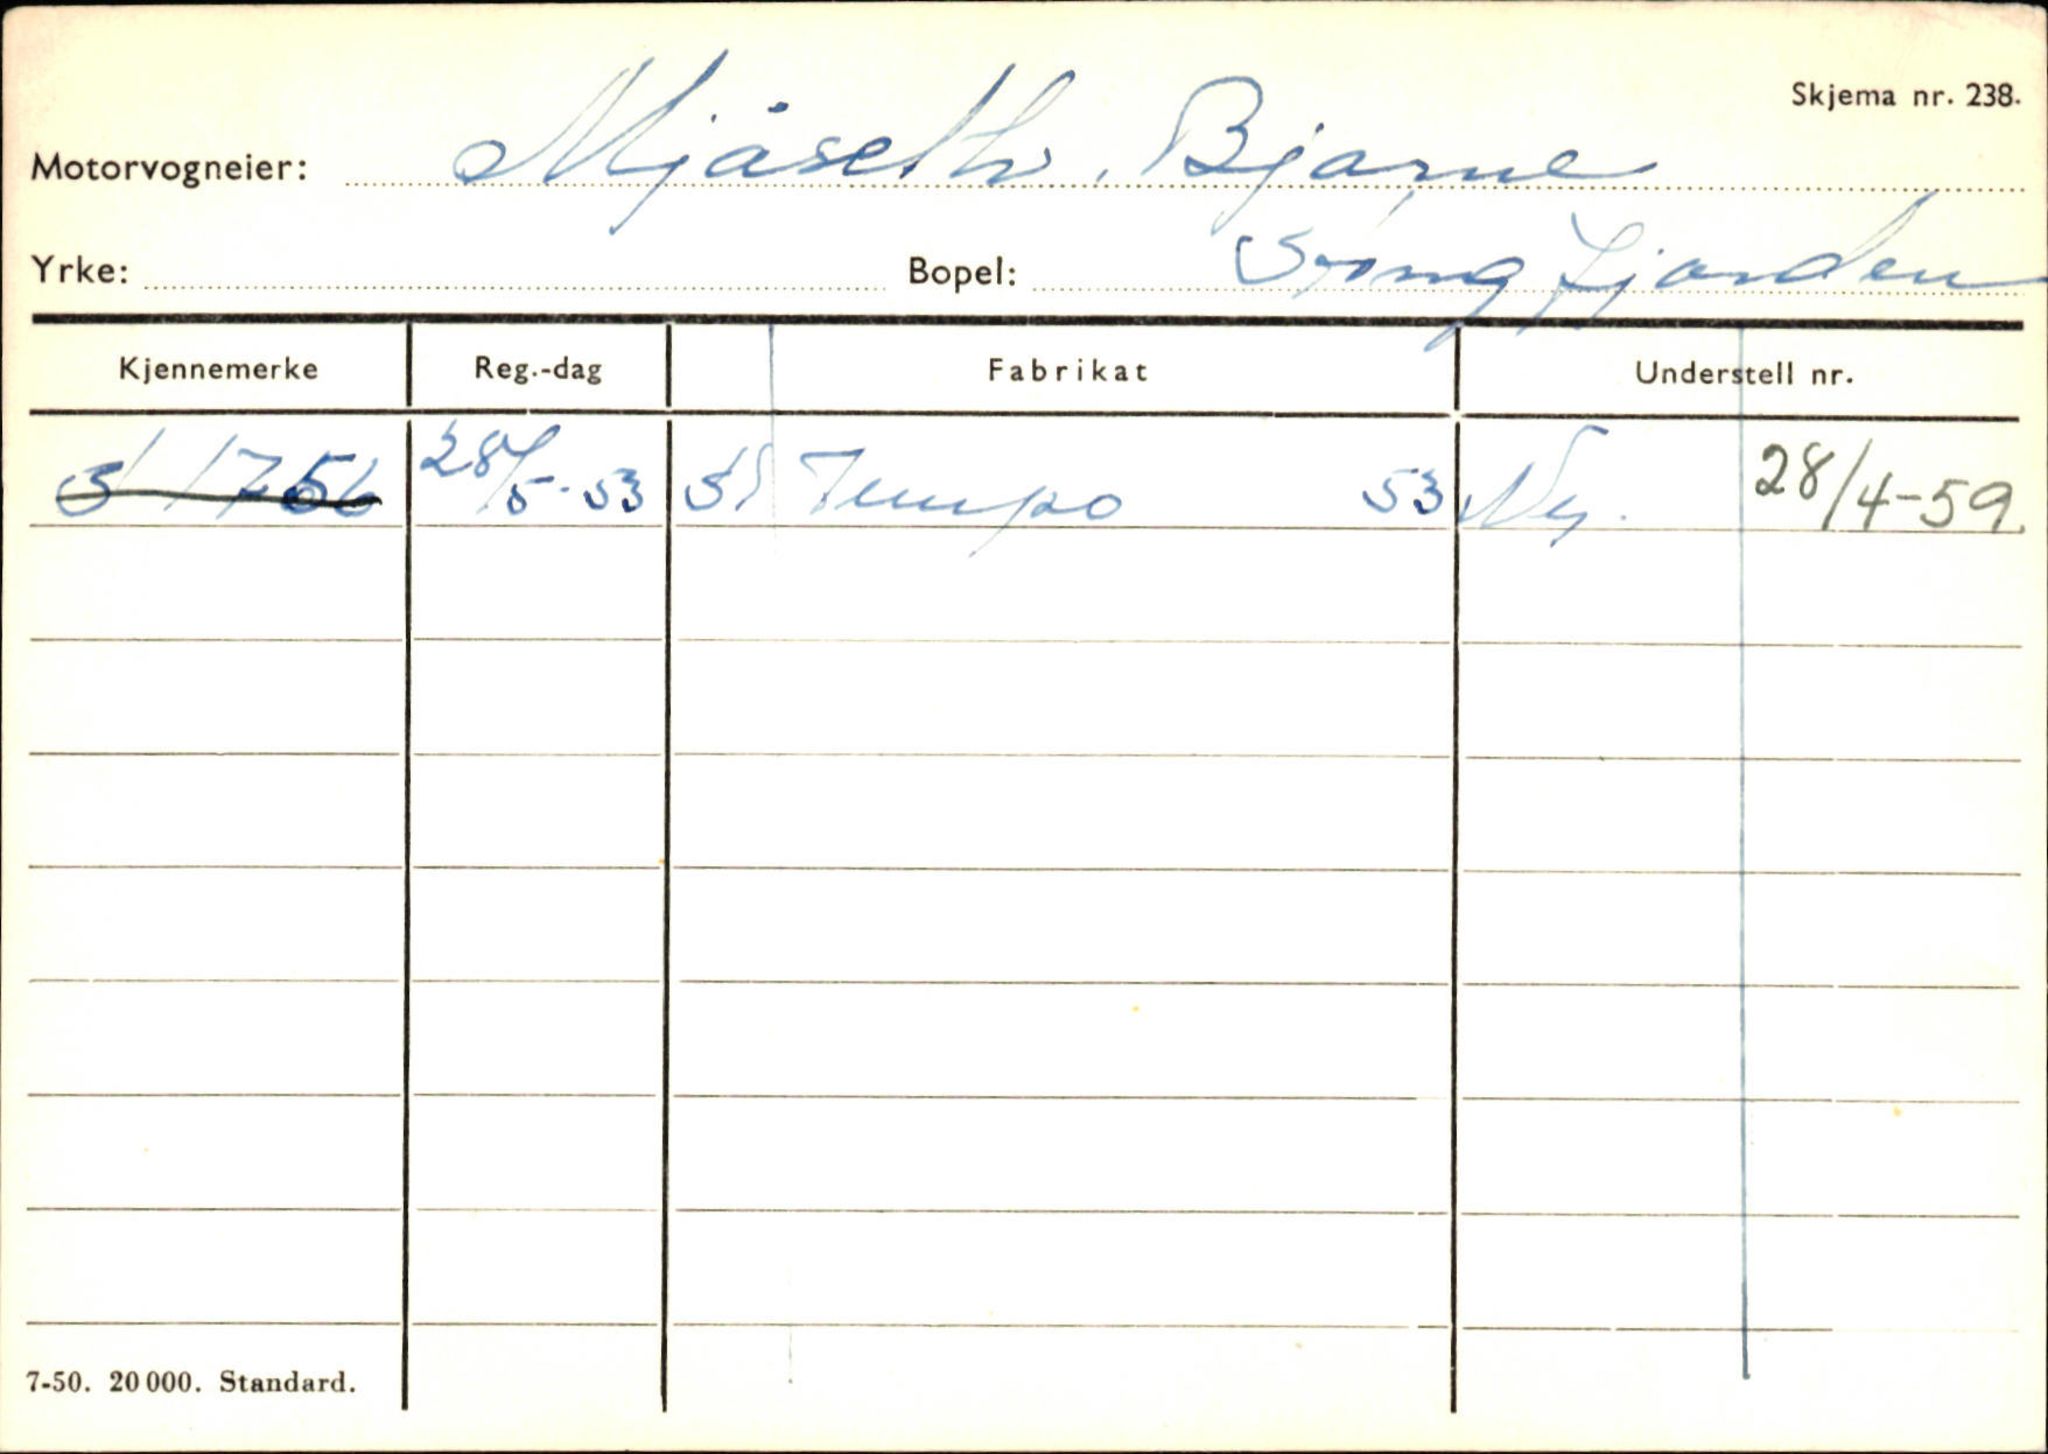 Skjema nr. 238.
Motorvogneier: Mjåseth, Bjarne
Yrke: Bopel: Srongfjorden
Kjennemerke Reg.-dag Fabrikat Understell nr.
S 1756 28/5-53 Sl Tempo 53 Ny. 28/4-59.
7-50. 20 000. Standard.